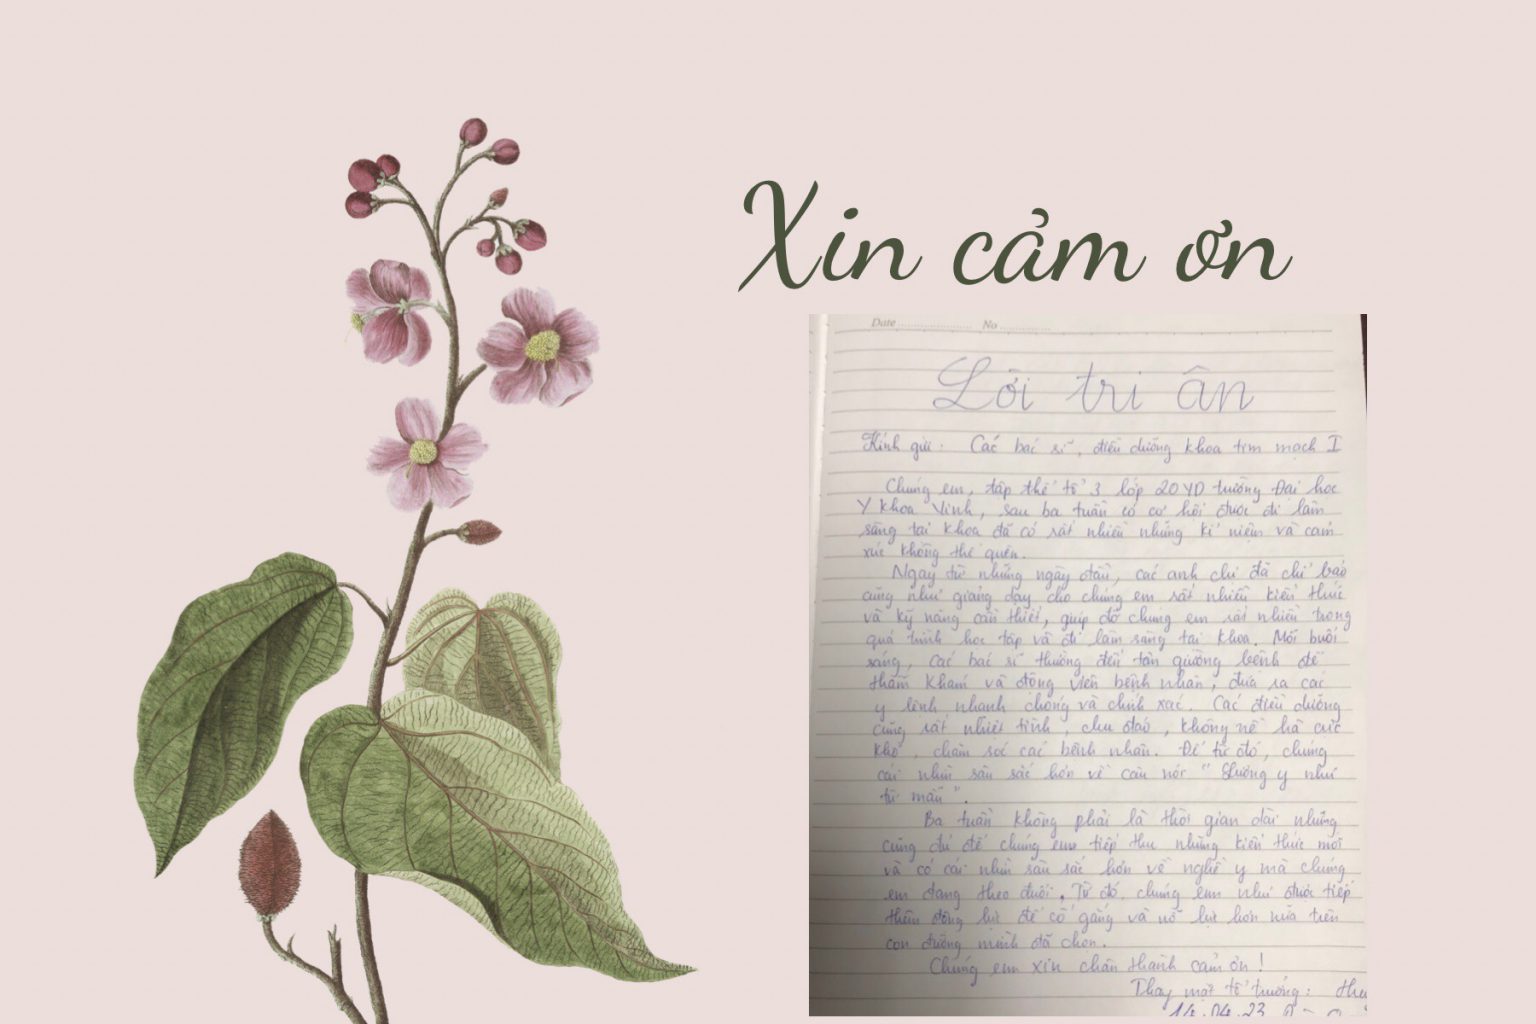 Xin cảm ơn
Date ........................ No ................
Lời tri ân
Kính gửi: Các bác sĩ, điều dưỡng khoa tim mạch I
Chúng em, tập thể tổ 3 lớp 20YD trường Đại học
Y khoa Vinh, sau ba tuần có cơ hội được đi lâm
sàng tại khoa đã có rất nhiều những kỉ niệm và cảm
xúc không thể quên.
Ngay từ những ngày đầu, các anh chị đã chỉ bảo
cũng như giảng dạy cho chúng em rất nhiều kiến thức
và kỹ năng cần thiết, giúp đỡ chúng em rất nhiều trong
quá trình học tập và đi lâm sàng tại khoa. Mỗi buổi
sáng, các bác sĩ thường đến tận giường bệnh để
thăm khám và động viên bệnh nhân, đưa ra các
y lệnh nhanh chóng và chính xác. Các điều dưỡng
cũng rất nhiệt tình, chu đáo, không nề hà cực
khổ, chăm sóc các bệnh nhân. Để từ đó, chúng
cái nhìn sâu sắc hơn về câu nói "Lương y như
từ mẫu".
Ba tuần không phải là thời gian dài nhưng
cũng đủ để chúng em tiếp thu những kiến thức mới
và có cái nhìn sâu sắc hơn về nghề y mà chúng
em đang theo đuổi. Từ đó, chúng em như được tiếp
thêm động lực để cố gắng và nỗ lực hơn nữa trên
con đường mình đã chọn.
Chúng em xin chân thành cảm ơn!
Thay mặt tổ trưởng:
14.04.23